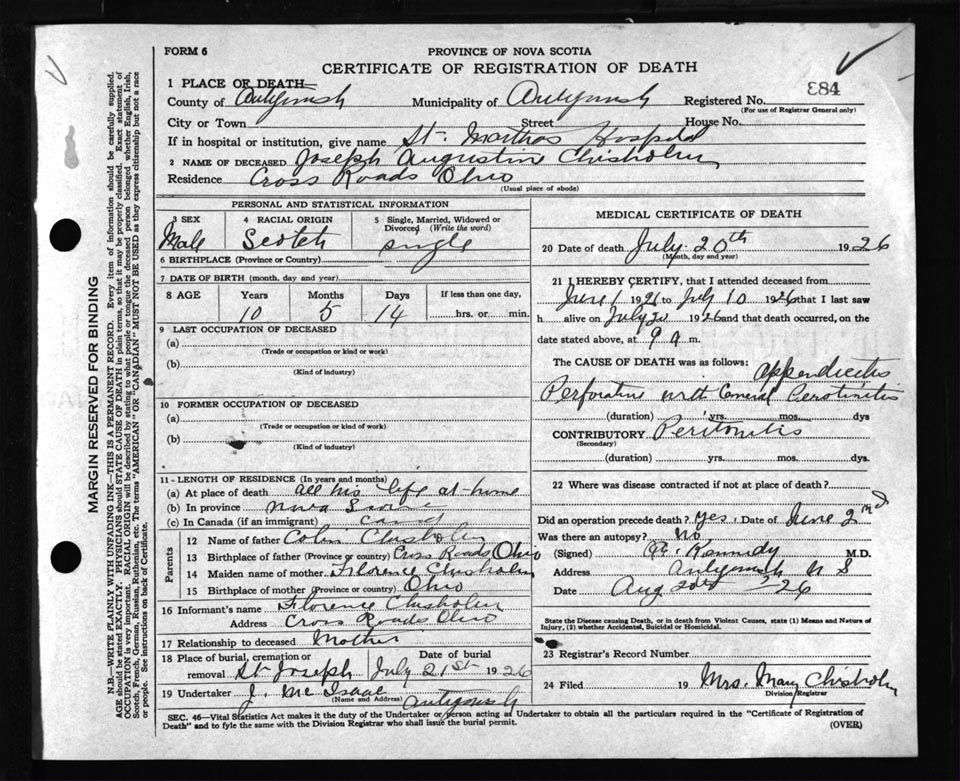 FORM 6
PROVINCE OF NOVA SCOTIA
CERTIFICATE OF REGISTRATION OF DEATH
1 PLACE OF DEATH
County of Antigonish Municipality of Antigonish Registered No. 884
(For use of Registrar General only)
City or Town Street House No.
If in hospital or institution, give name St. Marthas Hospital
2 NAME OF DECEASED Joseph Augustin Chisholm
Residence Cross Roads Ohio
(Usual place of abode)
PERSONAL AND STATISTICAL INFORMATION
3 SEX 4 RACIAL ORIGIN 5 Single, Married, Widowed or Divorced (Write the word)
Male Scotch single
6 BIRTHPLACE (Province or Country)
7 DATE OF BIRTH (month, day and year)
8 AGE Years Months Days If less than one day,
10 5 14 hrs. or min.
9 LAST OCCUPATION OF DECEASED
(a)
(Trade or occupation or kind or work)
(b)
(Kind of industry)
10 FORMER OCCUPATION OF DECEASED
(a)
(Trade or occupation or kind of work)
(b)
(Kind of industry)
11 - LENGTH OF RESIDENCE (In years and months)
(a) At place of death all his life at home
(b) In province Nova Scotia
(c) In Canada (if an immigrant)
Parents
12 Name of father Colin Chisholm
13 Birthplace of father (Province or country) Cross Roads Ohio
14 Maiden name of mother Florence Chisholm
15 Birthplace of mother (Province or country) Ohio
16 Informant's name Florence Chisholm
Address Cross Roads Ohio
17 Relationship to deceased Mother
18 Place of burial, cremation or removal St Joseph Date of burial July 21st 1926
19 Undertaker J. McIsaac Antigonish
(Name and Address)
MEDICAL CERTIFICATE OF DEATH
20 Date of death July 20th 1926
(Month, day and year)
21 I HEREBY CERTIFY, that I attended deceased from
June 1 1926 to July 10 1926 that I last saw
h alive on July 20 1926 and that death occurred, on the
date stated above, at 9 a m.
The CAUSE OF DEATH was as follows: appendicitis
Perforative with General Peritinitis
(duration) yrs. mos. dys
CONTRIBUTORY Peritonitis
(Secondary)
(duration) yrs. mos. dys.
22 Where was disease contracted if not at place of death?
Did an operation precede death? yes. Date of June 2nd
Was there an autopsy? No
(Signed) Kennedy M.D.
Address Antigonish N S
Date Aug 20th 26
State the Disease causing Death, or in death from Violent Causes, state (1) Means and Nature of
Injury, (2) whether Accidental, Suicidal or Homicidal.
23 Registrar's Record Number
24 Filed 19 Mrs. Mary Chisholm
Division Registrar
SEC. 46—Vital Statistics Act makes it the duty of the Undertaker or person acting as Undertaker to obtain all the particulars required in the "Certificate of Registration of
Death" and to fyle the same with the Division Registrar who shall issue the burial permit.
(OVER)
MARGIN RESERVED FOR BINDING
N.B.—WRITE PLAINLY WITH UNFADING INK—THIS IS A PERMANENT RECORD. Every item of information should be carefully supplied.
AGE should be stated EXACTLY. PHYSICIANS should STATE CAUSE OF DEATH in plain terms, so that it may be properly classified. Exact statement of
OCCUPATION is very important. RACIAL ORIGIN will be described by stating to what people or tongue the deceased person belonged whether English, Irish,
Scotch, French, German, Russian, Ruthenian, etc. The terms "AMERICAN" OR "CANADIAN" MUST NOT BE USED as they express citizenship but not a race
or people. See instructions on back of Certificate.